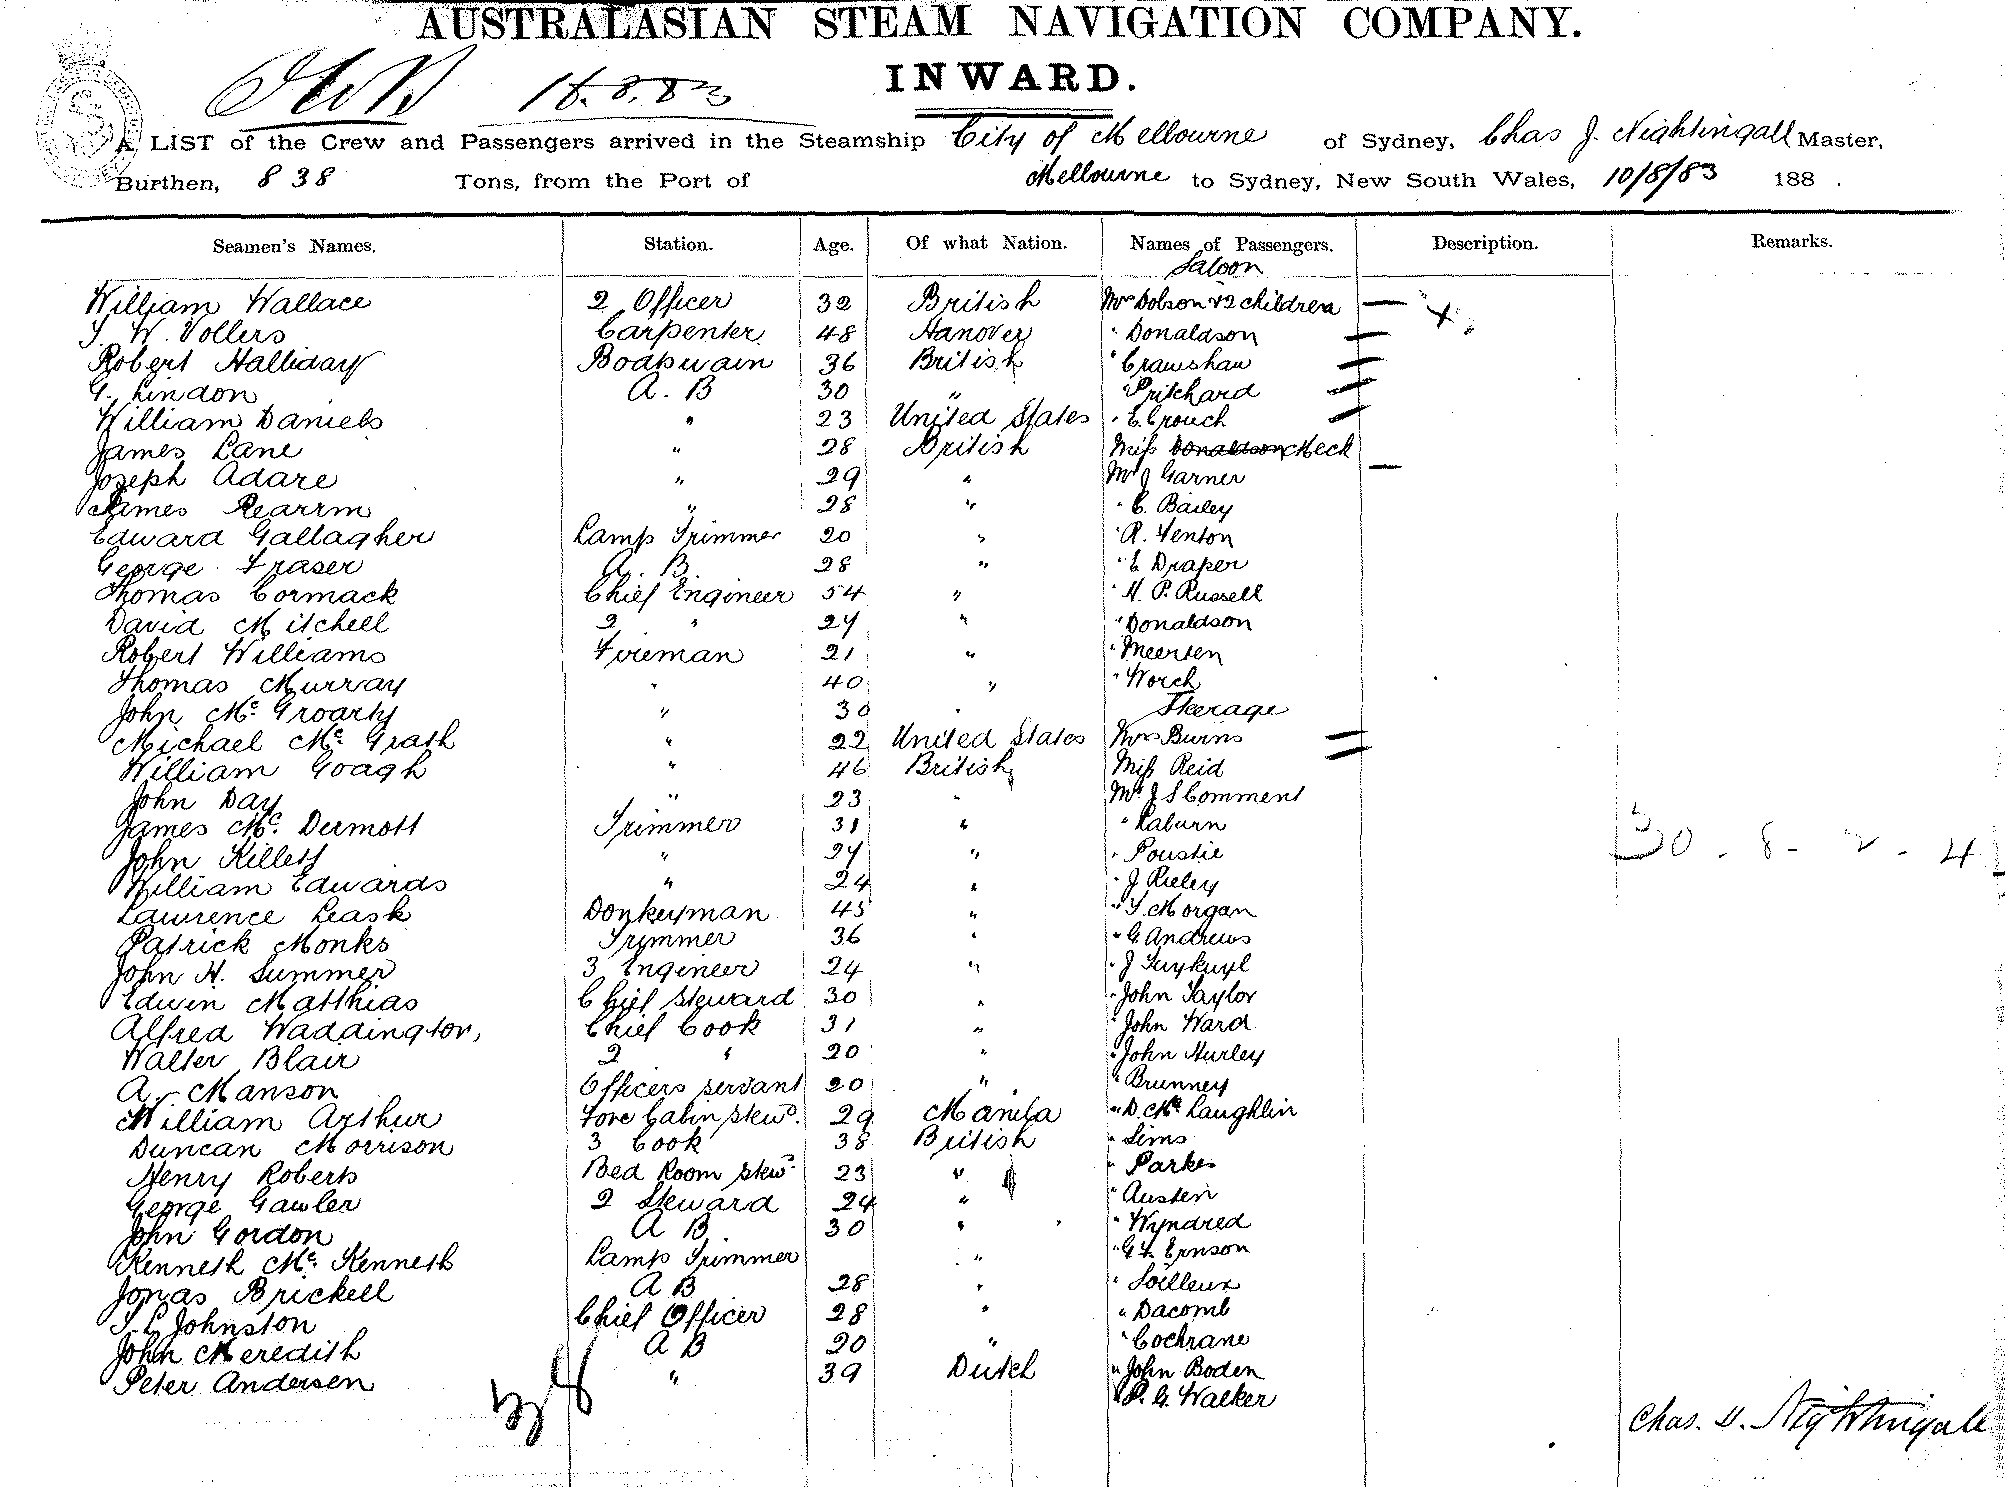 AUSTRALASIAN STEAM NAVIGATION COMPANY.
INWARD.
A LIST of the Crew and Passengers arrived in the Steamship City of Melbourne of Sydney, Chas J. Nightingall Master,
Burthen, 838 Tons, from the Port of Melbourne to Sydney, New South Wales, 10/8/83 188 .
Seamen's Names. Station. Age. Of what Nation. Names of Passengers. Description. Remarks.
Saloon
William Wallace 2 Officer 32 British Mrs Dobson & 2 children
J. W. Vollers Carpenter 48 Hanover " Donaldson
Robert Halliday Boatswain 36 British " Crawshaw
G. Lindon A. B 30 " " Pritchard
William Daniels " 23 United States " E. Crouch
James Lane " 28 British Miss Donaldson Meck
Joseph Adare " 29 " Mr J Garner
James Rearrm " 28 " " C. Bailey
Edward Gallagher Lamp Trimmer 20 " " R. Fenton
George Fraser A. B 28 " " E Draper
Thomas Cormack Chief Engineer 54 " " H. P. Russell
David Mitchell 2 " 27 " " Donaldson
Robert Williams Fireman 21 " " Meerten
Thomas Murray " 40 " " Worch
John Mc Groarty " 30 " Steerage
Michael Mc Grath " 22 United States Mrs Burns
William Goagh " 46 British Miss Reid
John Day " 23 " Mr J S Comment
James Mc Dermott Trimmer 31 " " Raburn
John Killety " 27 " " Poustie
William Edwards " 24 " " J Rieley
Lawrence Leask Donkeyman 45 " " T. Morgan
Patrick Monks Trimmer 36 " " G. Andrews
John H. Summer 3 Engineer 24 " " J Tuykuyl
Edwin Matthias Chief Steward 30 " " John Taylor
Alfred Waddington, Chief Cook 31 " " John Ward
Walter Blair 2 " 20 " " John Hurley
A. Manson Officers servant 20 " " Brunney
William Arthur Fore Cabin Stewd. 29 Manila " D. Mc Laughlin
Duncan Morrison 3 Cook 38 British " Sims
Henry Roberts Bed Room Stewd 23 " " Parkes
George Gawler 2 Steward 24 " " Austen
John Gordon A B 30 " " Wyndred
Kenneth Mc Kenneth Lamp Trimmer " " G. F. Ernson
Jonas Brickell A B 28 " " Soilleux
J. L Johnston Chief Officer 28 " " Dacomb
John Meredith A B 20 " " Cochrane
Peter Andersen " 39 Dutch " John Boden
" P. G. Walker
Chas. J. Nightingale